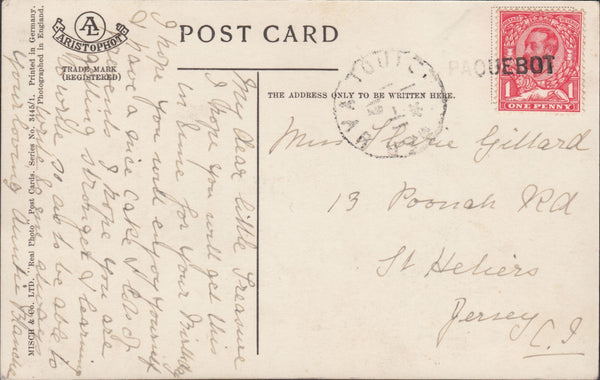 AL
ARISTOPHOT
TRADE MARK
(REGISTERED)
POST CARD
THE ADDRESS ONLY TO BE WRITTEN HERE.
PAQUEBOT
ONE PENNY
1 1
MISCH & Co. LTD. "Real Photo" Post Cards. Series No. 3445/1. Printed in Germany.
Photographed in England.
My dear little Treasure
I hope you will get this
in time for your Birthday
I hope you will enjoy yourself
& have a nice cake & lots of
presents I hope you are
getting stronger & learning
to write so as to be able to
your loving Auntie Blanche
Miss Marie Gillard
13 Poonah Rd
St Heliers
Jersey
C.I